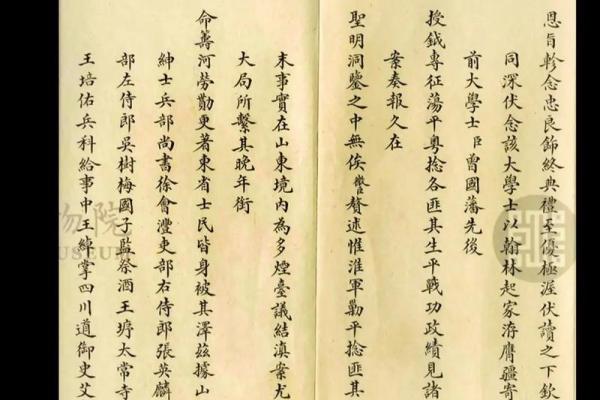 恩旨軫念忠良飾終典禮至優極渥伏讀之下欽
同深伏念該大學士以翰林起家洊膺疆寄
前大學士臣曾國藩先後
授鉞專征蕩平粵捻各匪其生平戰功政績見諸
案奏報久在
聖明洞鑒之中無俟臣等贅述惟淮軍勦平捻匪其
末事實在山東境內為多煙臺議結滇案尤
大局所繫其晚年銜
命籌河勞勩更著東省士民皆身被其澤茲據山
紳士兵部尚書徐會灃吏部右侍郎張英麟
部左侍郎吳樹梅國子監祭酒王垿太常寺
王培佑兵科給事中王綽掌四川道御史艾
物院
USEUM